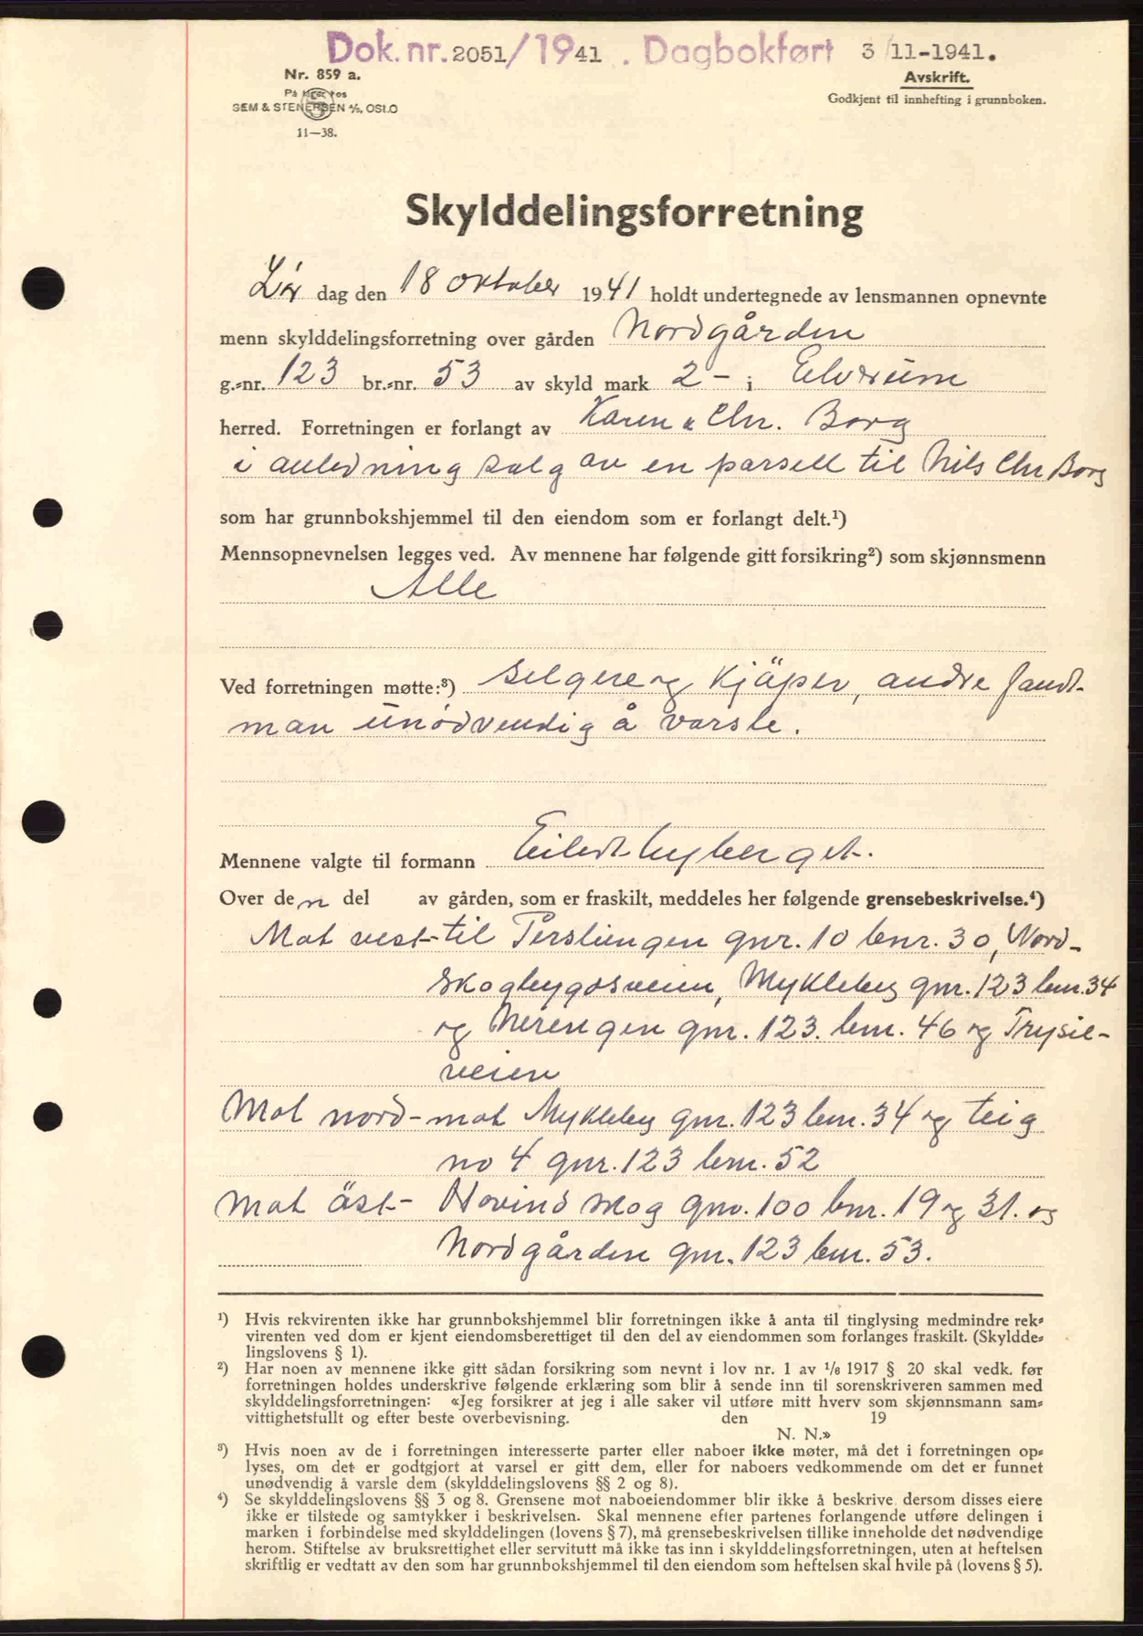 Dok. nr. 2051/1941. Dagbokført 3/11-1941.
Nr. 859 a.
Avskrift.
På lager hos
SEM & STENERSEN A/S, OSLO
Godkjent til innhefting i grunnboken.
11—38.
Skylddelingsforretning
Lør dag den 18 oktober 1941 holdt undertegnede av lensmannen opnevnte
menn skylddelingsforretning over gården Nordgården
g.-nr. 123 br.-nr. 53 av skyld mark 2- i Elverum
herred. Forretningen er forlangt av Karen & Chr. Borg
i anledning salg av en parsell til Nils Chr Borg
som har grunnbokshjemmel til den eiendom som er forlangt delt.¹)
Mennsopnevnelsen legges ved. Av mennene har følgende gitt forsikring²) som skjønnsmenn
Alle
Ved forretningen møtte:³) selgere og kjöper, andre fandt
man unödvendig å varsle.
Mennene valgte til formann Eilert Nyberget.
Over den del av gården, som er fraskilt, meddeles her følgende grensebeskrivelse.⁴)
Mot vest til gnr. 10 bnr. 30, Nord-
skogbygdsveien, Mykleby gnr. 123 bnr. 34
og Nerengen gnr. 123. bnr. 46 og Trysil-
veien
Mot nord - mot Mykleby gnr. 123 bnr. 34 og teig
no 4 gnr. 123 bnr. 52
Mot öst - Hovind skog gnr. 100 bnr. 19 og 31. og
Nordgården gnr. 123 bnr. 53.
¹) Hvis rekvirenten ikke har grunnbokshjemmel blir forretningen ikke å anta til tinglysing medmindre rek-
virenten ved dom er kjent eiendomsberettiget til den del av eiendommen som forlanges fraskilt. (Skyldde-
lingslovens § 1).
²) Har noen av mennene ikke gitt sådan forsikring som nevnt i lov nr. 1 av ¹/₆ 1917 § 20 skal vedk. før
forretningen holdes underskrive følgende erklæring som blir å sende inn til sorenskriveren sammen med
skylddelingsforretningen: «Jeg forsikrer at jeg i alle saker vil utføre mitt hverv som skjønnsmann sam-
vittighetsfullt og efter beste overbevisning. den 19
N. N.»
³) Hvis noen av de i forretningen interesserte parter eller naboer ikke møter, må det i forretningen op-
lyses, om det er godtgjort at varsel er gitt dem, eller for naboers vedkommende om det er funnet
unødvendig å varsle dem (skylddelingslovens §§ 2 og 8).
⁴) Se skylddelingslovens §§ 3 og 8. Grensene mot naboeiendommer blir ikke å beskrive dersom disses eiere
ikke er tilstede og samtykker i beskrivelsen. Skal mennene efter partenes forlangende utføre delingen i
marken i forbindelse med skylddelingen (lovens § 7), må grensebeskrivelsen tillike inneholde det nødvendige
herom. Stiftelse av bruksrettighet eller servitutt må ikke tas inn i skylddelingsforretningen, uten at heftelsen
skriftlig er vedtatt av den som har grunnbokshjemmel til den eiendom som heftelsen skal hvile på (lovens § 5).